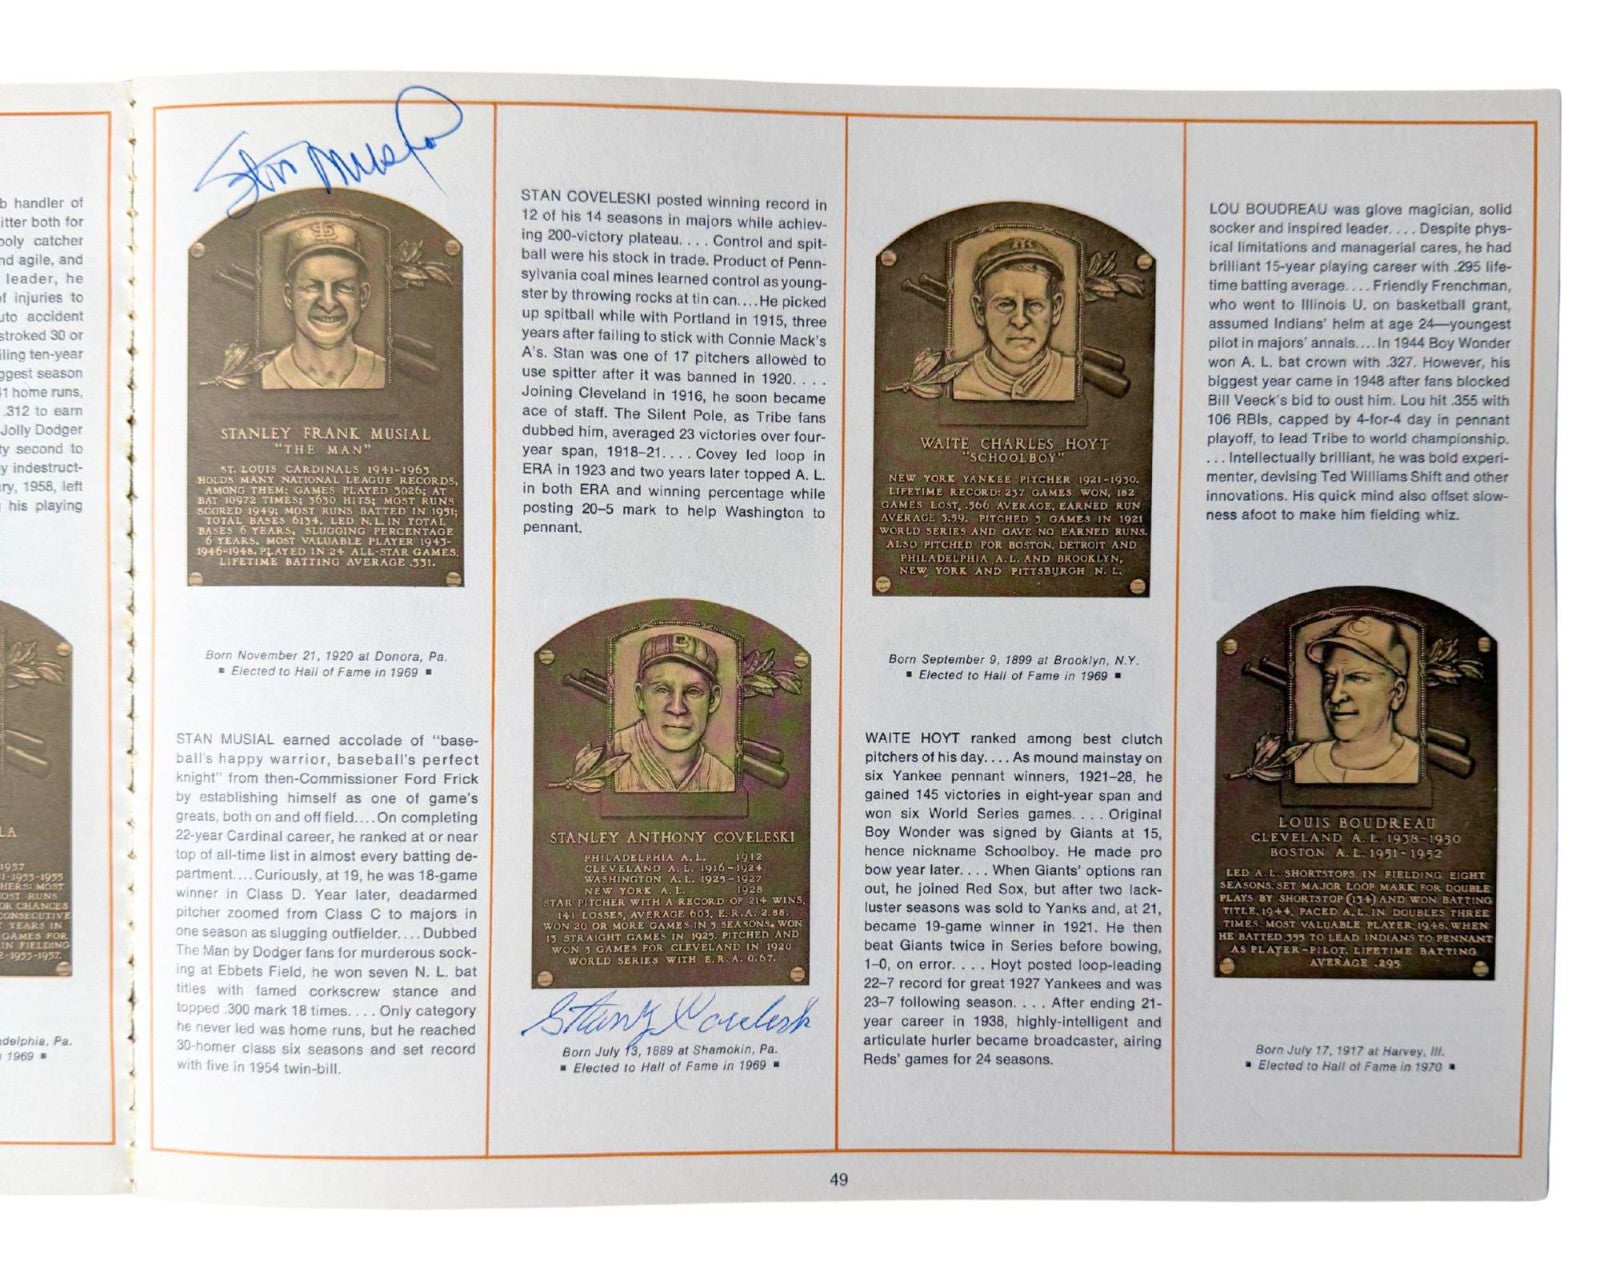 b handler of
itter both for
ooly catcher
nd agile, and
leader, he
of injuries to
uto accident
stroked 30 or
iling ten-year
ggest season
41 home runs,
.312 to earn
Jolly Dodger
ty second to
y indestruct-
ry, 1958, left
his playing
LA
1957
1-1953-1955
HERS: MOST
OST RUNS
OR CHANCES
CONSECUTIVE
YEARS IN
GAMES FOR
IN FIELDING
2-1953-1957.
adelphia, Pa.
1969 ▪
Stan Musial
STANLEY FRANK MUSIAL
"THE MAN"
ST. LOUIS CARDINALS 1941-1963
HOLDS MANY NATIONAL LEAGUE RECORDS,
AMONG THEM: GAMES PLAYED 3026; AT
BAT 10972 TIMES; 3630 HITS; MOST RUNS
SCORED 1949; MOST RUNS BATTED IN 1951;
TOTAL BASES 6134. LED N.L. IN TOTAL
BASES 6 YEARS, SLUGGING PERCENTAGE
6 YEARS. MOST VALUABLE PLAYER 1943-
1946-1948. PLAYED IN 24 ALL-STAR GAMES.
LIFETIME BATTING AVERAGE .331.
Born November 21, 1920 at Donora, Pa.
▪ Elected to Hall of Fame in 1969 ▪
STAN MUSIAL earned accolade of "base-
ball's happy warrior, baseball's perfect
knight" from then-Commissioner Ford Frick
by establishing himself as one of game's
greats, both on and off field....On completing
22-year Cardinal career, he ranked at or near
top of all-time list in almost every batting de-
partment....Curiously, at 19, he was 18-game
winner in Class D. Year later, deadarmed
pitcher zoomed from Class C to majors in
one season as slugging outfielder....Dubbed
The Man by Dodger fans for murderous sock-
ing at Ebbets Field, he won seven N. L. bat
titles with famed corkscrew stance and
topped .300 mark 18 times.... Only category
he never led was home runs, but he reached
30-homer class six seasons and set record
with five in 1954 twin-bill.
STAN COVELESKI posted winning record in
12 of his 14 seasons in majors while achiev-
ing 200-victory plateau.... Control and spit-
ball were his stock in trade. Product of Penn-
sylvania coal mines learned control as young-
ster by throwing rocks at tin can....He picked
up spitball while with Portland in 1915, three
years after failing to stick with Connie Mack's
A's. Stan was one of 17 pitchers allowed to
use spitter after it was banned in 1920. . . .
Joining Cleveland in 1916, he soon became
ace of staff. The Silent Pole, as Tribe fans
dubbed him, averaged 23 victories over four-
year span, 1918-21.... Covey led loop in
ERA in 1923 and two years later topped A. L.
in both ERA and winning percentage while
posting 20-5 mark to help Washington to
pennant.
STANLEY ANTHONY COVELESKI
PHILADELPHIA A.L. 1912
CLEVELAND A.L. 1916-1924
WASHINGTON A.L. 1925-1927
NEW YORK A.L. 1928
STAR PITCHER WITH A RECORD OF 214 WINS,
141 LOSSES, AVERAGE 603, E.R.A. 2.88.
WON 20 OR MORE GAMES IN 5 SEASONS. WON
13 STRAIGHT GAMES IN 1925. PITCHED AND
WON 3 GAMES FOR CLEVELAND IN 1920
WORLD SERIES WITH E.R.A. 0.67.
Stanley Coveleski
Born July 13, 1889 at Shamokin, Pa.
▪ Elected to Hall of Fame in 1969 ▪
WAITE CHARLES HOYT
"SCHOOLBOY"
NEW YORK YANKEE PITCHER 1921-1930.
LIFETIME RECORD: 237 GAMES WON, 182
GAMES LOST, .566 AVERAGE, EARNED RUN
AVERAGE 3.59. PITCHED 3 GAMES IN 1921
WORLD SERIES AND GAVE NO EARNED RUNS.
ALSO PITCHED FOR BOSTON, DETROIT AND
PHILADELPHIA A.L. AND BROOKLYN,
NEW YORK AND PITTSBURGH N.L.
Born September 9, 1899 at Brooklyn, N.Y.
▪ Elected to Hall of Fame in 1969 ▪
WAITE HOYT ranked among best clutch
pitchers of his day.... As mound mainstay on
six Yankee pennant winners, 1921-28, he
gained 145 victories in eight-year span and
won six World Series games. . . . Original
Boy Wonder was signed by Giants at 15,
hence nickname Schoolboy. He made pro
bow year later. . . . When Giants' options ran
out, he joined Red Sox, but after two lack-
luster seasons was sold to Yanks and, at 21,
became 19-game winner in 1921. He then
beat Giants twice in Series before bowing,
1-0, on error. . . . Hoyt posted loop-leading
22-7 record for great 1927 Yankees and was
23-7 following season. . . . After ending 21-
year career in 1938, highly-intelligent and
articulate hurler became broadcaster, airing
Reds' games for 24 seasons.
LOU BOUDREAU was glove magician, solid
socker and inspired leader.... Despite phys-
ical limitations and managerial cares, he had
brilliant 15-year playing career with .295 life-
time batting average.... Friendly Frenchman,
who went to Illinois U. on basketball grant,
assumed Indians' helm at age 24—youngest
pilot in majors' annals....In 1944 Boy Wonder
won A. L. bat crown with .327. However, his
biggest year came in 1948 after fans blocked
Bill Veeck's bid to oust him. Lou hit .355 with
106 RBIs, capped by 4-for-4 day in pennant
playoff, to lead Tribe to world championship.
. . . Intellectually brilliant, he was bold experi-
menter, devising Ted Williams Shift and other
innovations. His quick mind also offset slow-
ness afoot to make him fielding whiz.
LOUIS BOUDREAU
CLEVELAND A.L. 1938-1950
BOSTON A.L. 1951-1952
LED A.L. SHORTSTOPS IN FIELDING EIGHT
SEASONS. SET MAJOR LOOP MARK FOR DOUBLE
PLAYS BY SHORTSTOP (134) AND WON BATTING
TITLE, 1944. PACED A.L. IN DOUBLES THREE
TIMES. MOST VALUABLE PLAYER, 1948, WHEN
HE BATTED .355 TO LEAD INDIANS TO PENNANT
AS PLAYER-PILOT. LIFETIME BATTING
AVERAGE .295
Born July 17, 1917 at Harvey, Ill.
▪ Elected to Hall of Fame in 1970 ▪
49